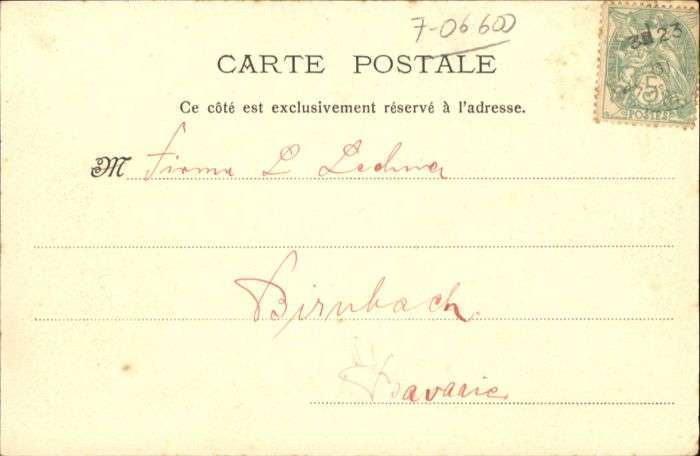 7-06 600
CARTE POSTALE
Ce côté est exclusivement réservé à l'adresse.
M Firma L Lechner
Birnbach.
Bavaric
3 23
5
POSTES